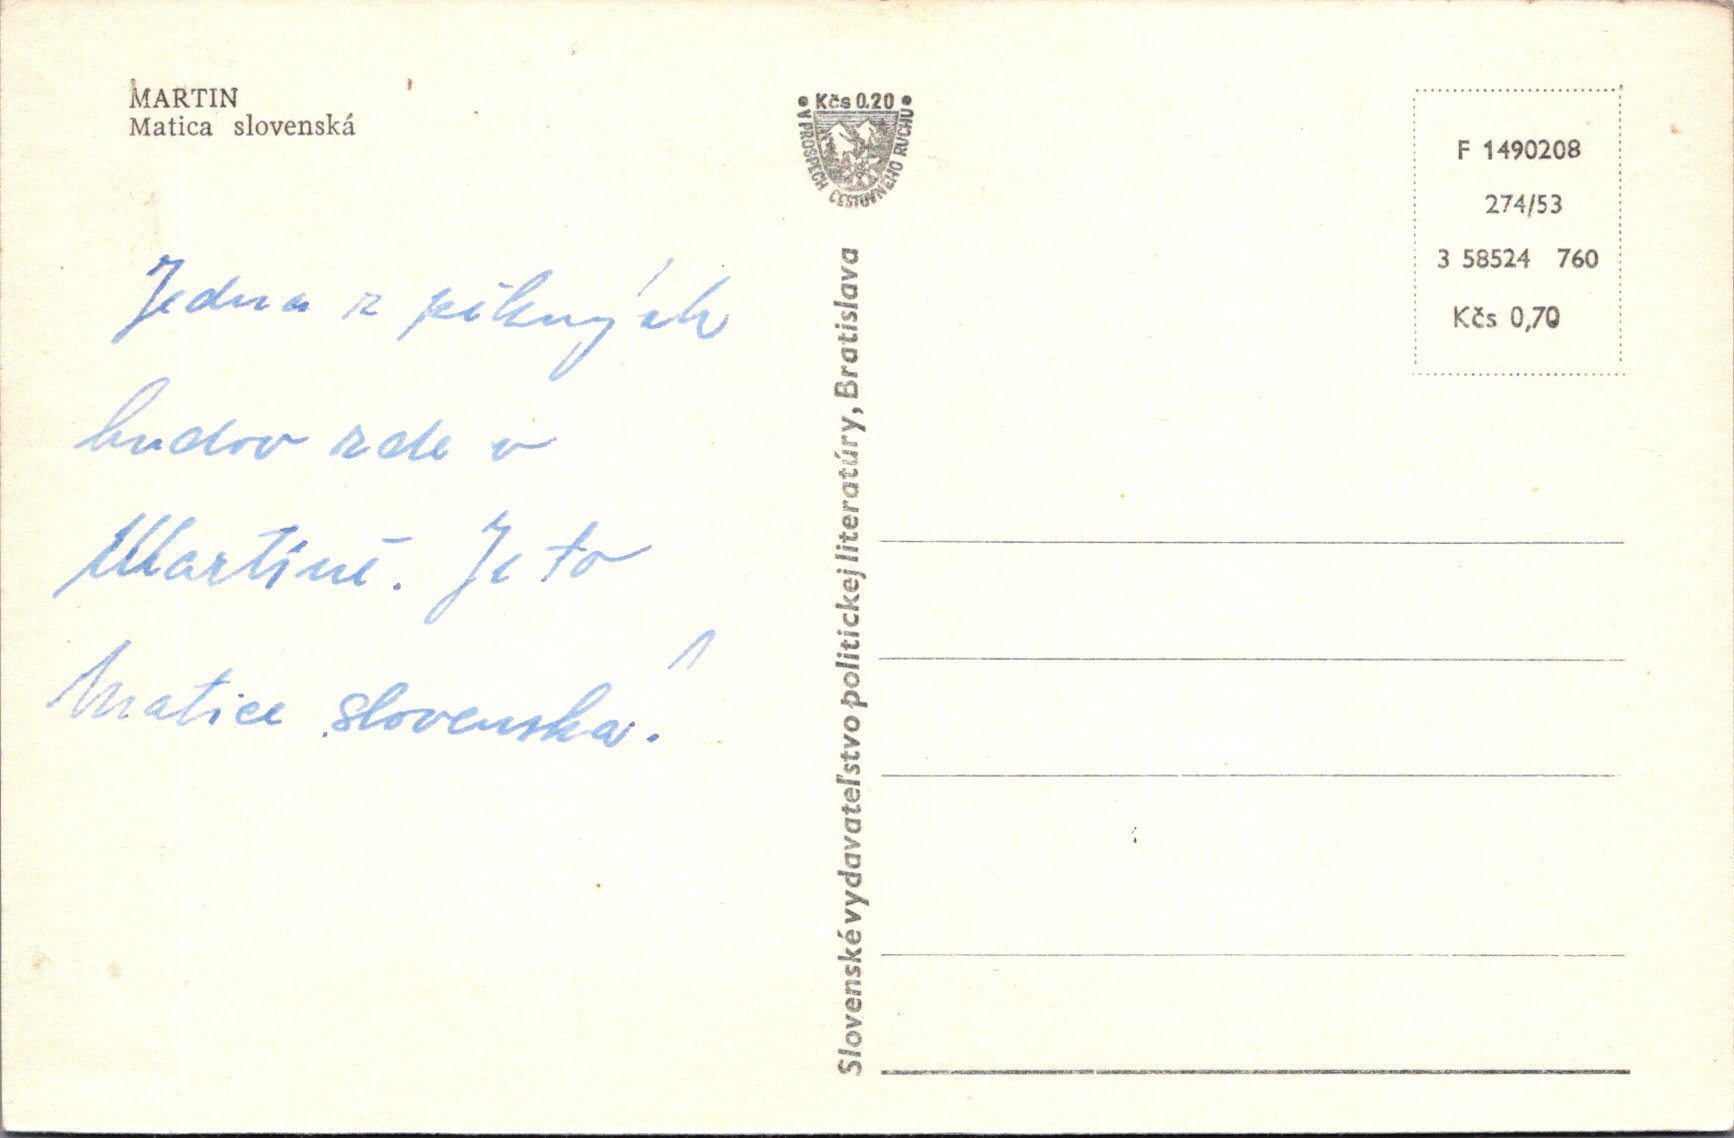 MARTIN
Matica slovenská
Jedna z pěkných
budov zde v
Martině. Je to
Matice slovenská.
• Kčs 0.20 •
V PROSPECH CESTOVNÉHO RUCHU
Slovenské vydavateľstvo politickej literatúry, Bratislava
F 1490208
274/53
3 58524 760
Kčs 0,70